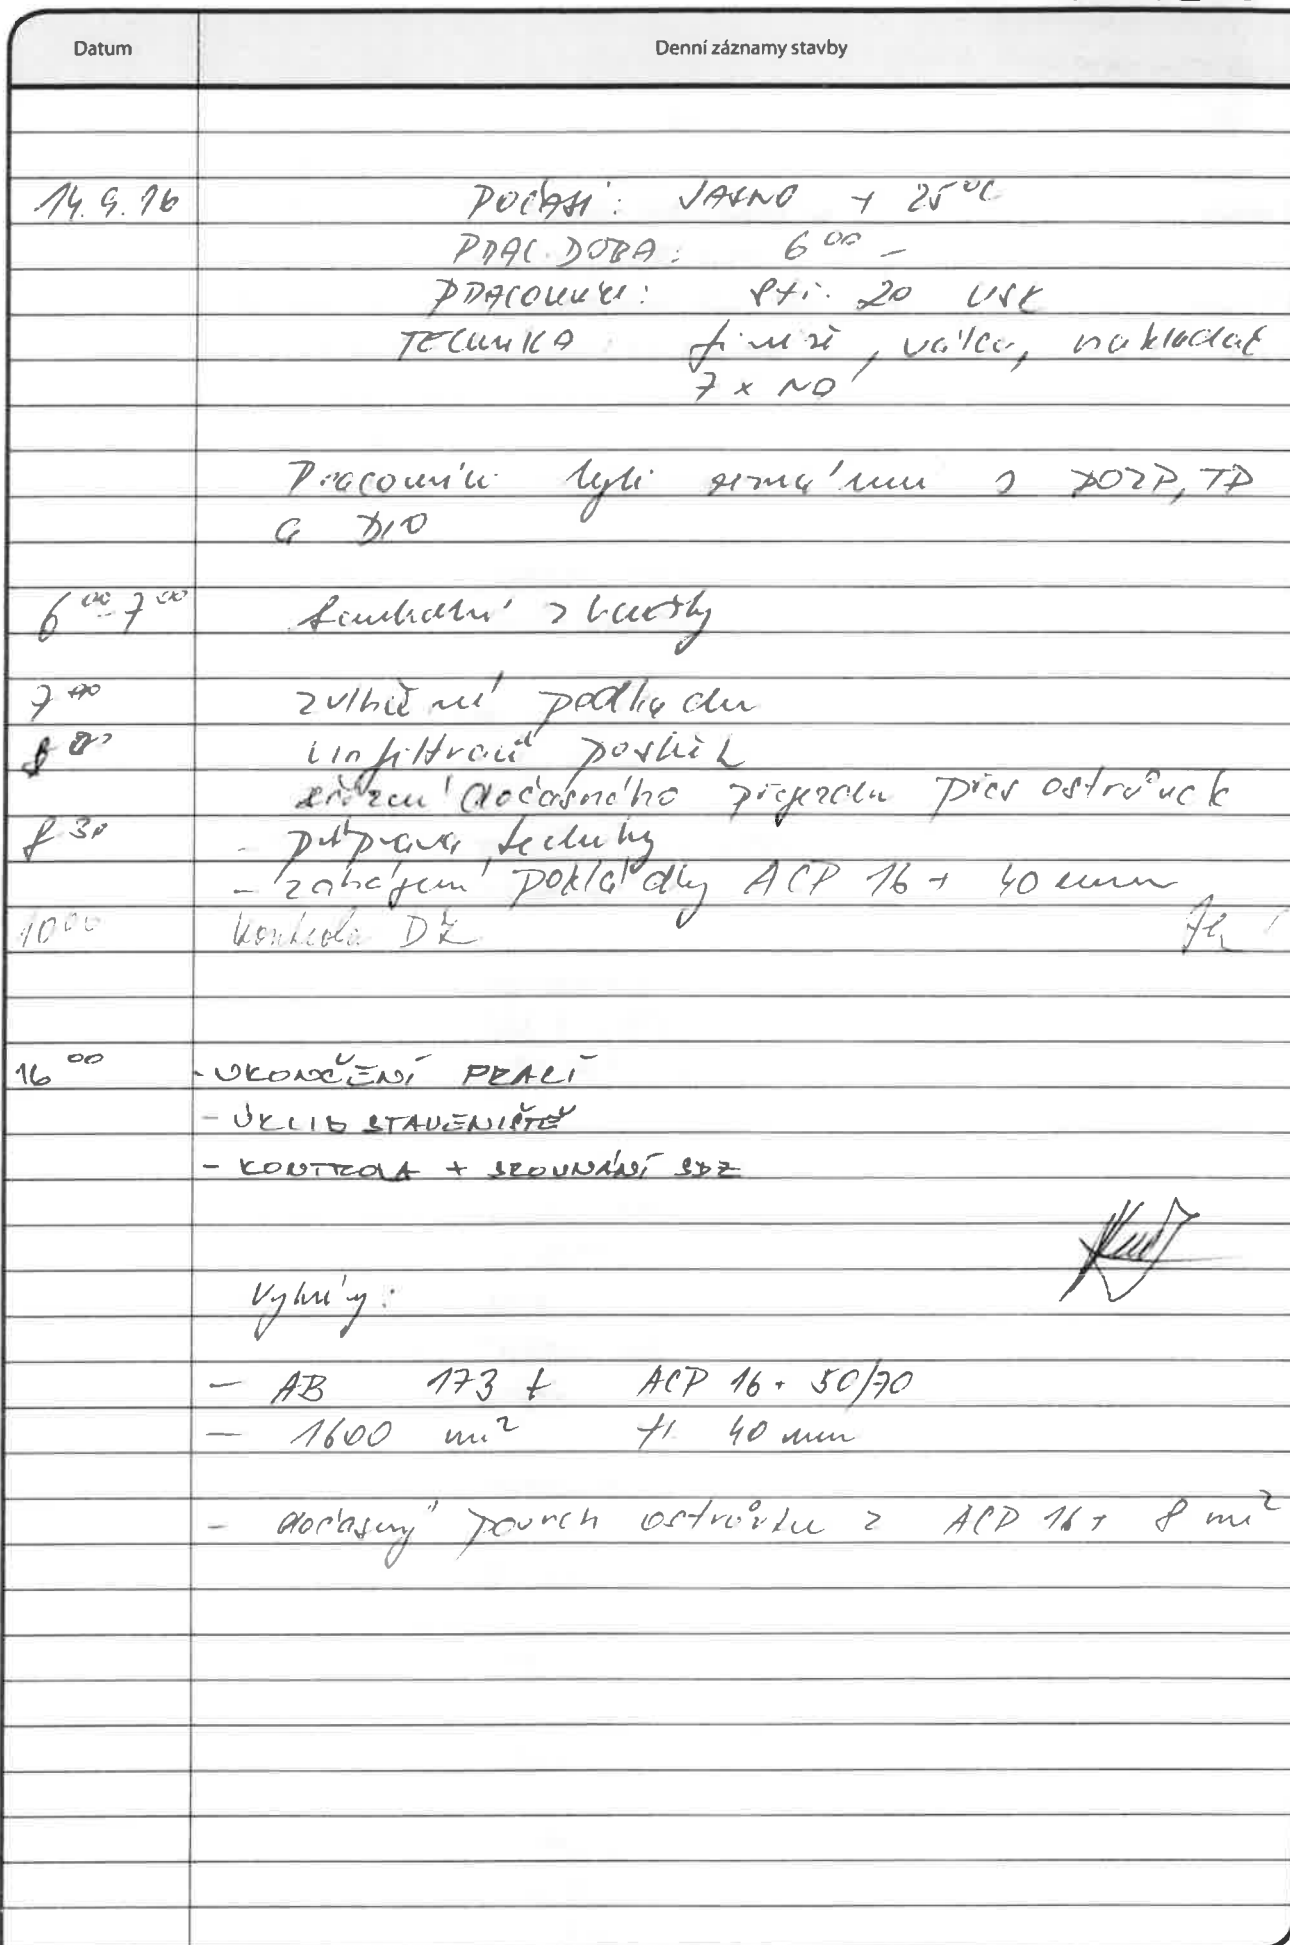 Datum Denní záznamy stavby
14.9.16 POČASÍ: JASNO + 25°C
PRAC. DOBA: 6⁰⁰ –
PRACOVNÍCI: stř. 20 USK
TECHNIKA finišer, válce, nakladač
7 x NA
Pracovníci byli seznámeni s BOZP, TP
a DIO
6⁰⁰-7⁰⁰ zkoušky
7⁰⁰ zvlhčení podkladu
8⁰⁰ infiltrační postřik
zřízení dočasného přejezdu přes ostrůvek
8³⁰ - příprava techniky
- zahájení pokládky ACP 16+ 40 mm
10⁰⁰ kontrola DZ
16⁰⁰ - UKONČENÍ PRACÍ
- ÚKLID STAVENIŠTĚ
- KONTROLA + SROVNÁNÍ SDZ
Výkony:
- AB 173 t ACP 16+ 50/70
- 1600 m² tl. 40 mm
- dočasný povrch ostrůvku z ACP 16+ 8 m²